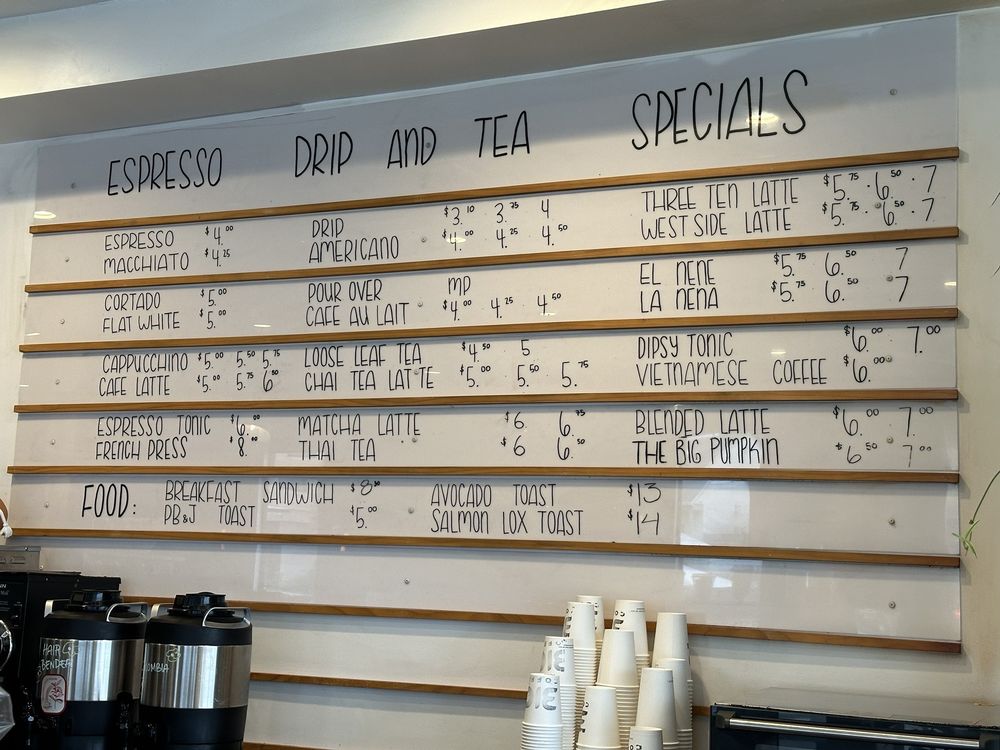 ESPRESSO
ESPRESSO $4.00
MACCHIATO $4.25
CORTADO $5.00
FLAT WHITE $5.00
CAPPUCCINO $5.00 5.50 5.75
CAFE LATTE $5.00 5.75 6.50
ESPRESSO TONIC $6.00
FRENCH PRESS $8.00
DRIP AND TEA
DRIP $3.10 3.75 4
AMERICANO $4.00 4.25 4.50
POUR OVER MP
CAFE AU LAIT $4.00 4.25 4.50
LOOSE LEAF TEA $4.50 5
CHAI TEA LATTE $5.00 5.50 5.75
MATCHA LATTE $6 6.75
THAI TEA $6 6.50
SPECIALS
THREE TEN LATTE $5.75 · 6.50 · 7
WEST SIDE LATTE $5.75 · 6.50 · 7
EL NENE $5.75 6.50 7
LA NENA $5.75 6.50 7
DIPSY TONIC $6.00 7.00
VIETNAMESE COFFEE $6.00
BLENDED LATTE $6.00 7.00
THE BIG PUMPKIN $6.50 7.00
FOOD:
BREAKFAST SANDWICH $8.50
PB&J TOAST $5.00
AVOCADO TOAST $13
SALMON LOX TOAST $14
HAIR
BENDER